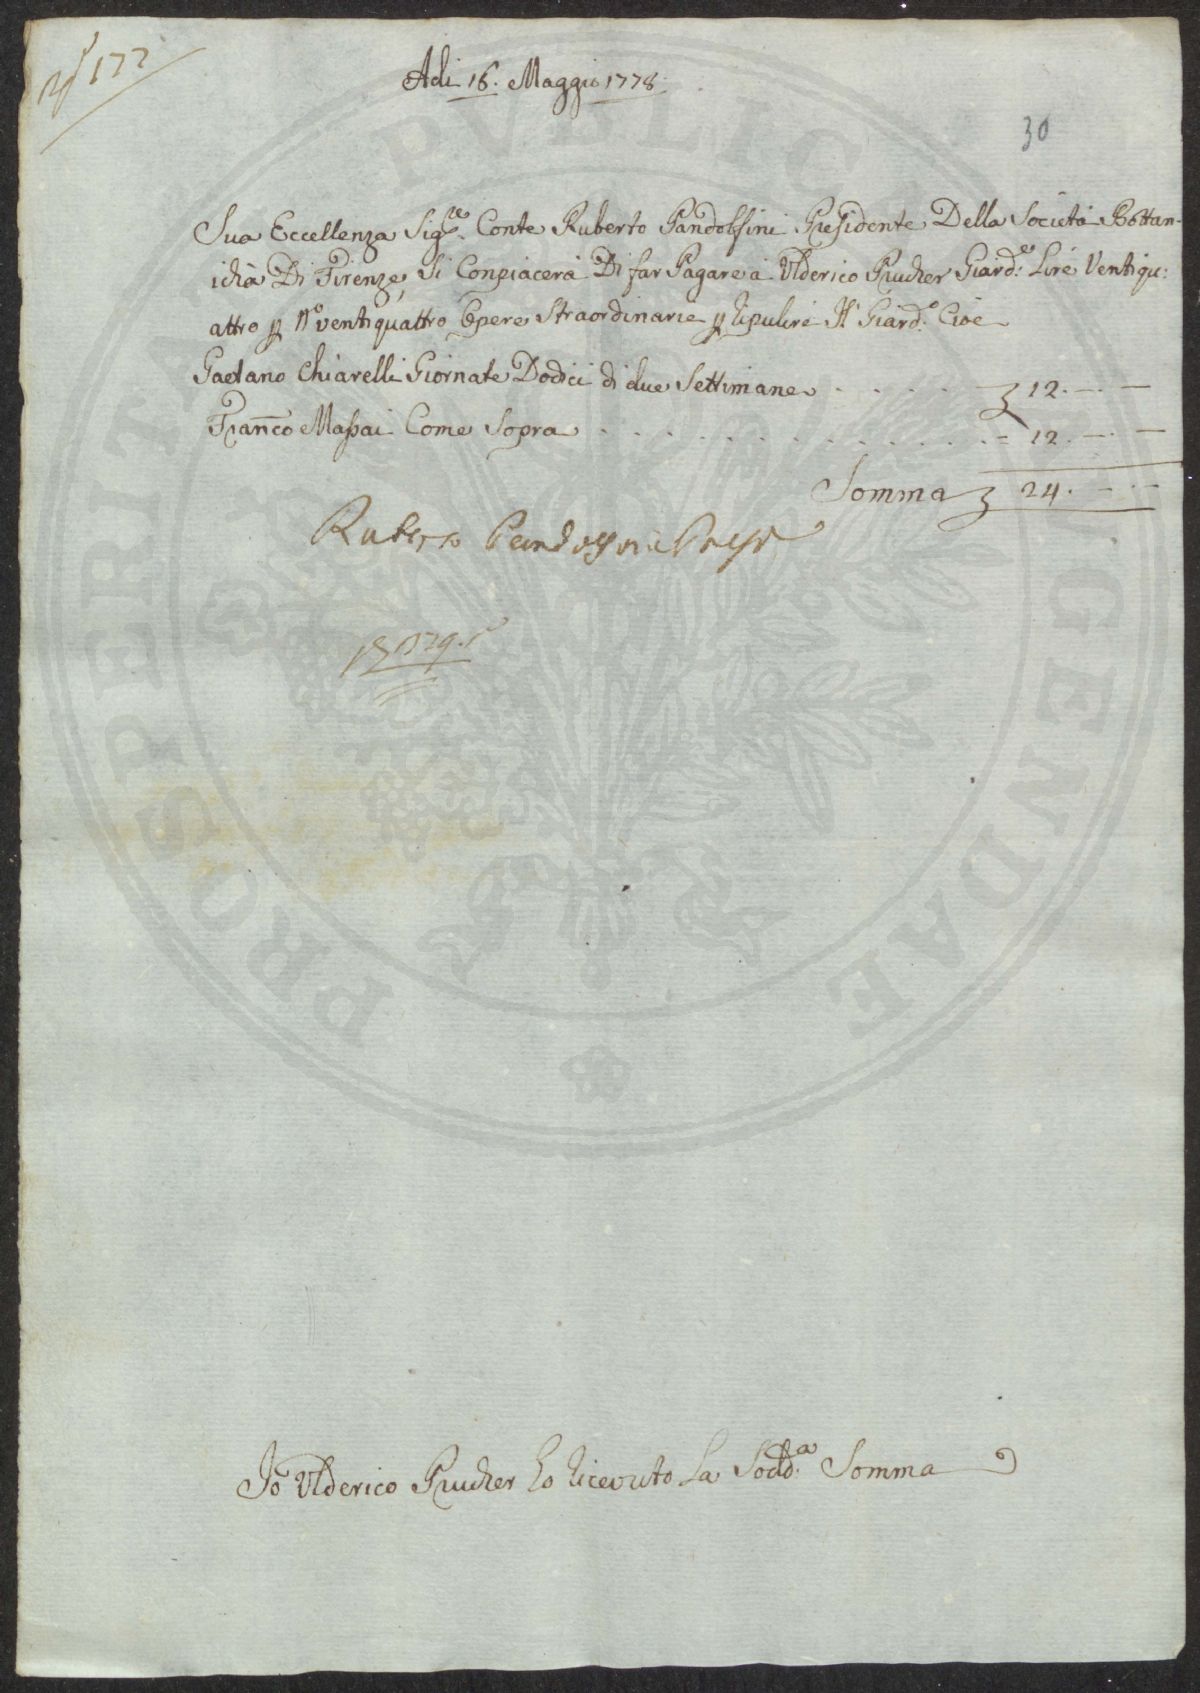 177
Adi 16. Maggio 1778.
30
Sua Eccellenza Sig.re Conte Ruberto Pandolfini Presidente Della Società Bottan-
icha Di Firenze, Si Conpiacerà Di far Pagare à Ulderico Prucher Giard.e Lire Ventiqu:
attro p N.o ventiquattro Opere Straordinarie p ripulire Il Giard.o Cioè
Gaetano Chiarelli Giornate Dodici di due Settimane 12. — —
Fran͞co Massai Come Sopra = 12. — —
Somma 24. — —
Ruberto Pandolfini Presid
Io Ulderico Prucher ho ricevuto La Sodd.a Somma
PROSPERITATI PVBLICAE AVGENDAE